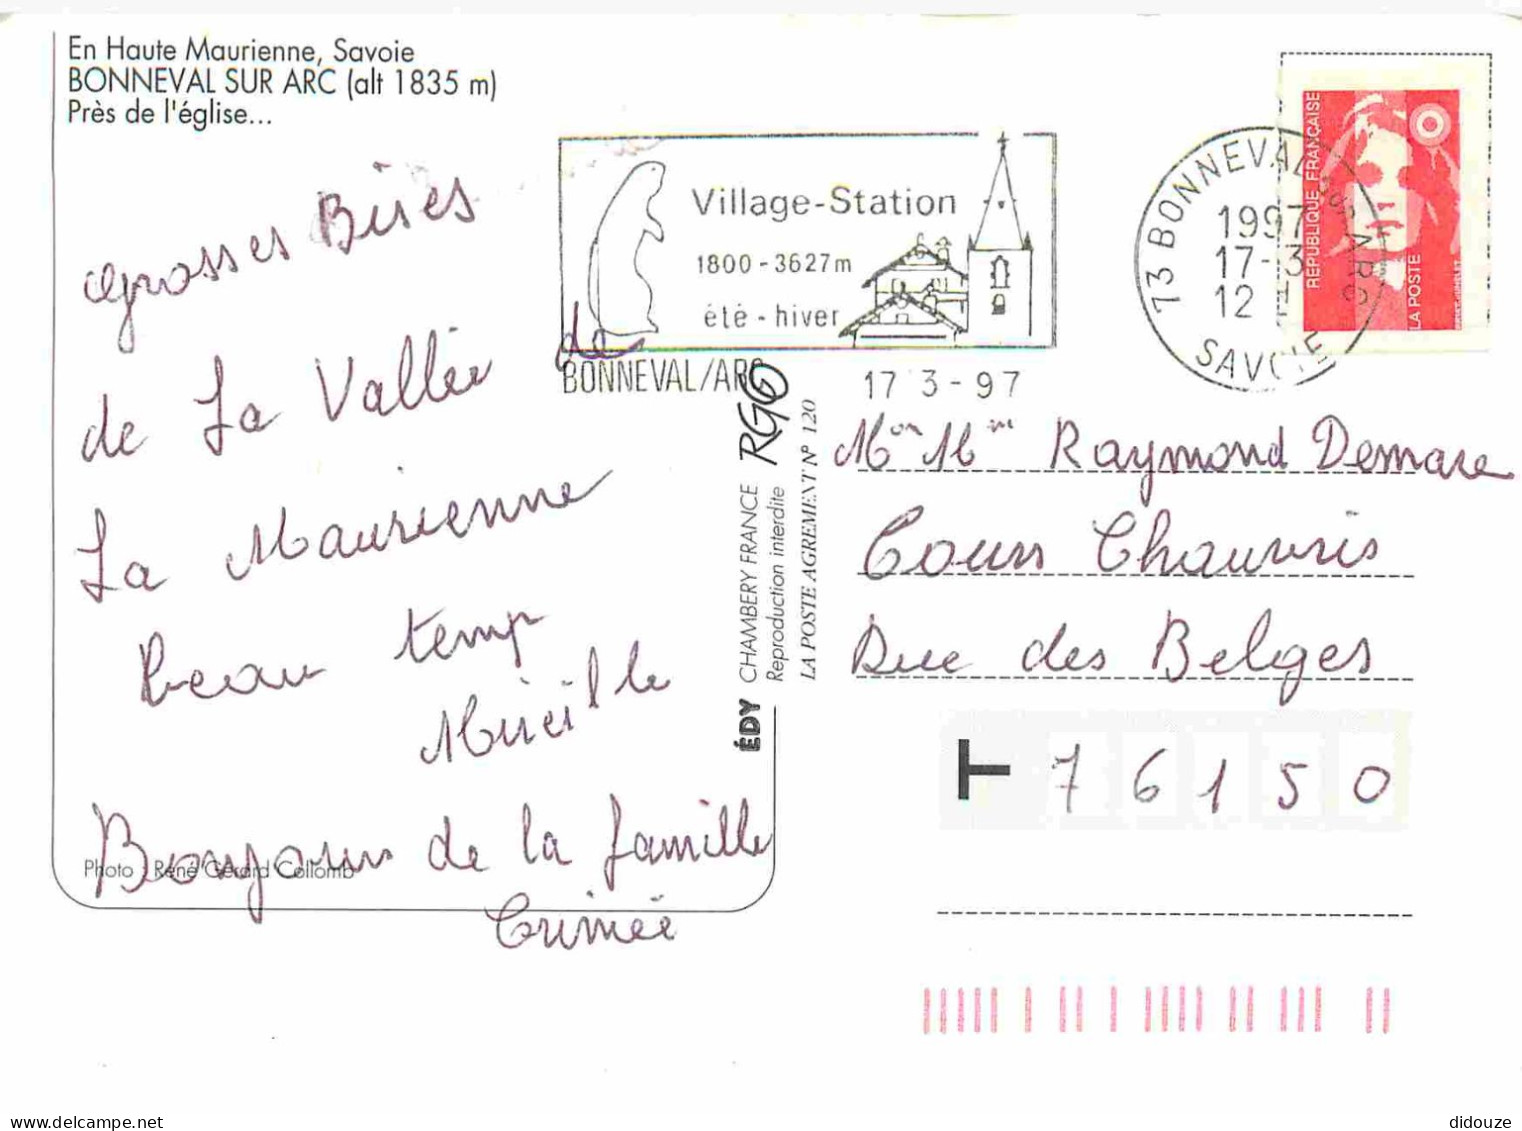 En Haute Maurienne, Savoie
BONNEVAL SUR ARC (alt 1835 m)
Près de l'église...
grosses Bises
de La Vallée de
La Maurienne
beau temp
Mireille
Bonjour de la famille
Crimée
Photo : René Gérard Collomb
Village-Station
1800 - 3627m
été - hiver
BONNEVAL/ARC
17 3 - 97
73 BONNEVAL sur ARC
1997
17-3
12 H
SAVOIE
RÉPUBLIQUE FRANÇAISE
LA POSTE
ÉDY CHAMBERY FRANCE RGC
Reproduction interdite
LA POSTE AGREMENT N° 120
Mon Mme Raymond Demare
Cours Chauvris
Rue des Belges
T 76150
didouze